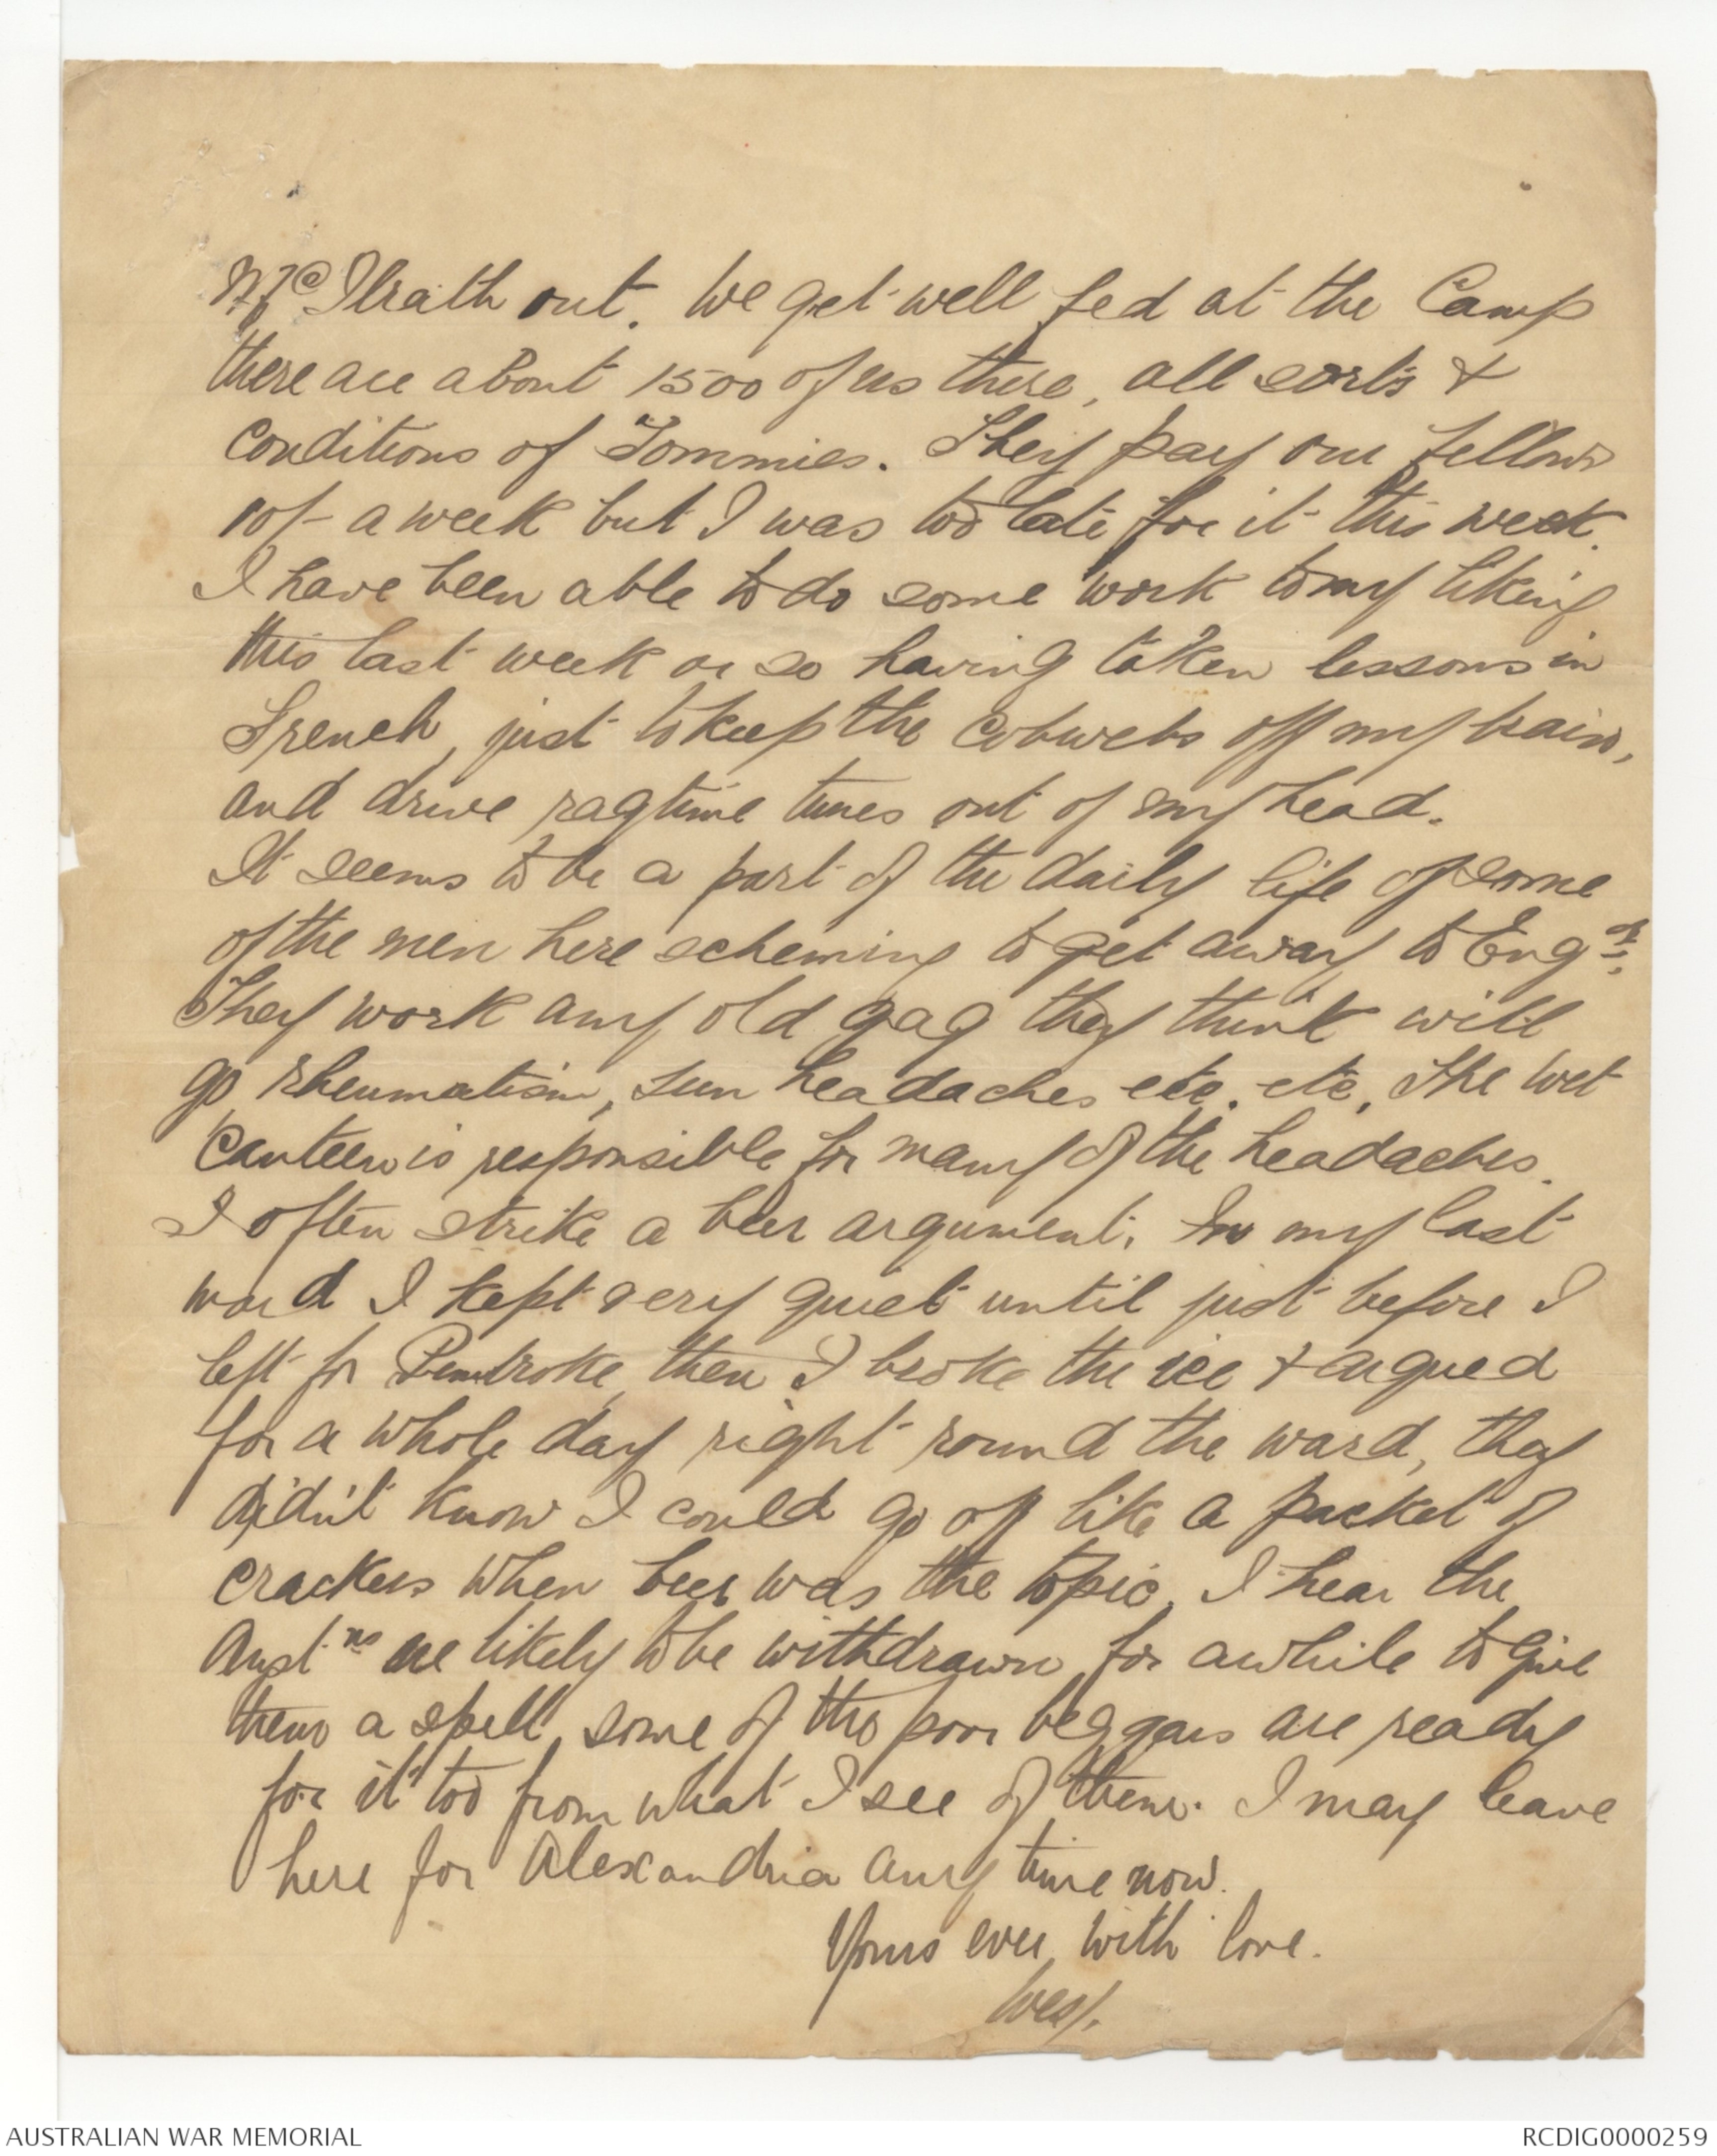 McIlrath out. We get well fed at the Camp
there are about 1500 of us there, all sorts &
conditions of Tommies. They pay our fellows
10/- a week but I was too late for it this week.
I have been able to do some work to my liking
this last week or so having taken lessons in
French, just to keep the cobwebs off my brain,
and drive ragtime tunes out of my head.
It seems to be a part of the daily life of some
of the men here scheming to get away to Engd.
They work any old gag they think will
go rheumatism, sun headaches etc. etc, The wet
Canteen is responsible for many of the headaches.
I often strike a beer argument. In my last
ward I kept very quiet until just before I
left for Pembroke, then I broke the ice & argued
for a whole day right round the ward, they
didn't know I could go off like a packet of
crackers when beer was the topic, I hear the
Austns are likely to be withdrawn for awhile to give
them a spell, some of the poor beggars are ready
for it too from what I see of them. I may leave
here for Alexandria any time now.
Yours ever, with love.
Wesy.
AUSTRALIAN WAR MEMORIAL
RCDIG0000259